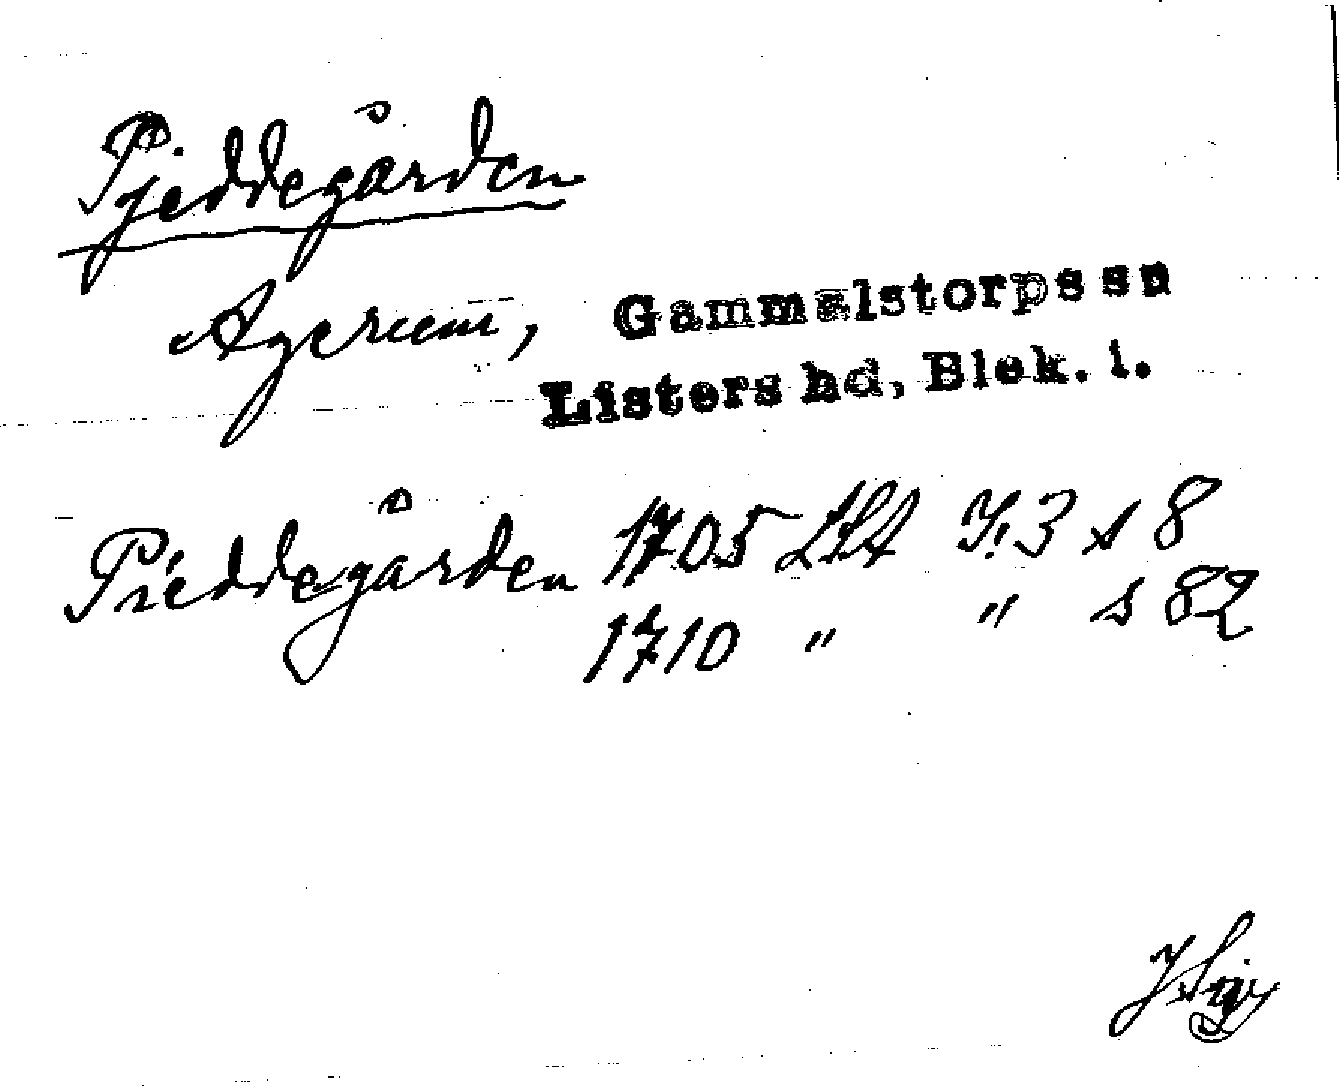 Pjeddegården
Agerum, Gammalstorps sn
Listers hd, Blek. l.
Pieddegården 1705 LSA I:3 s 8
1710 " " s 82